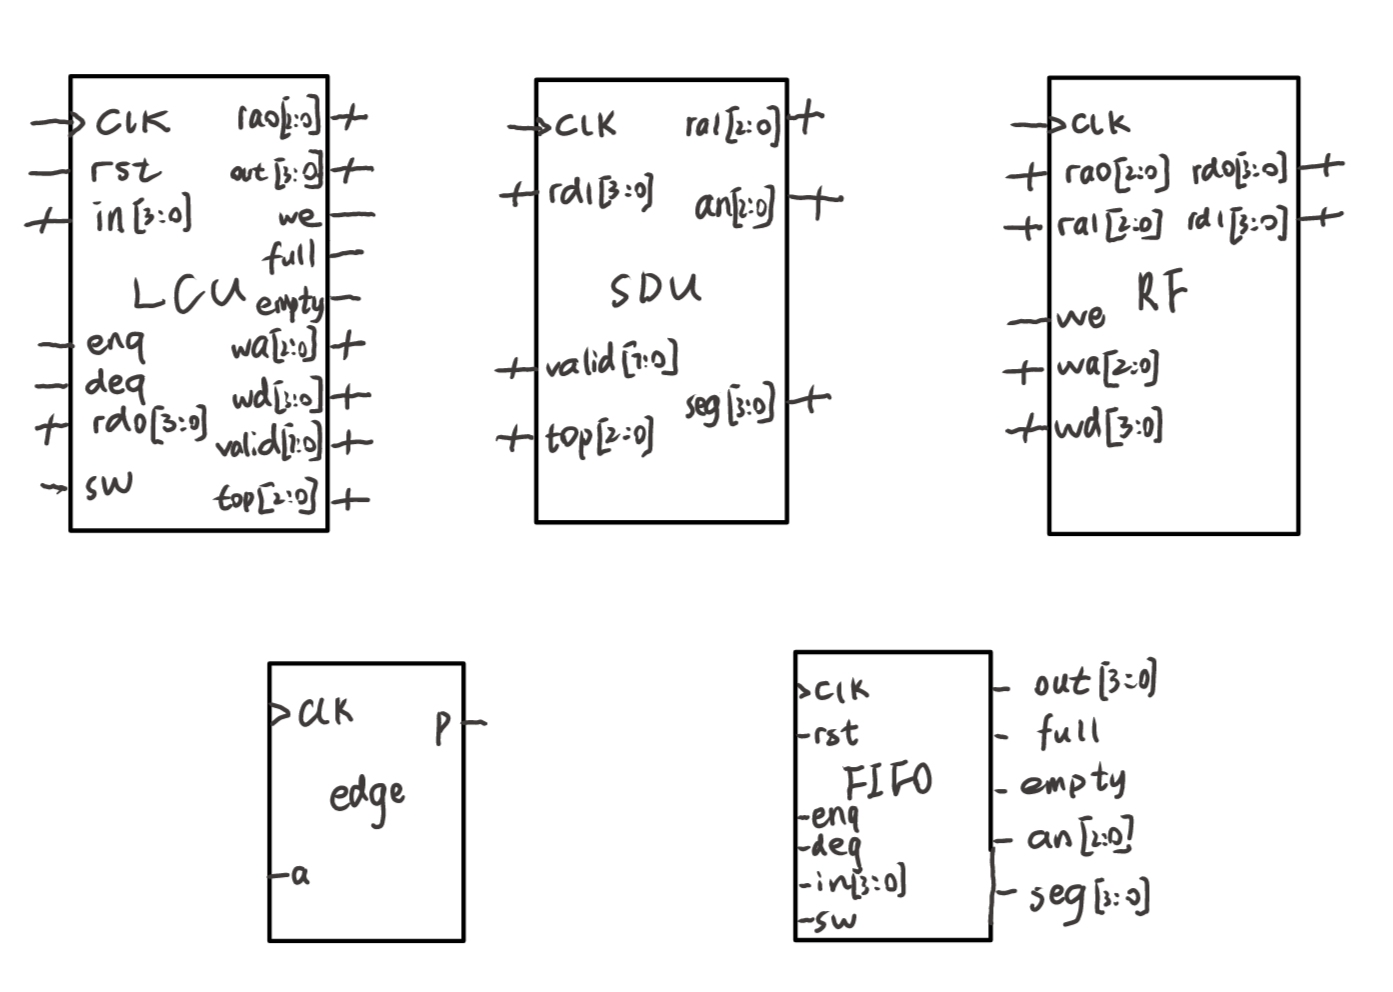 CLK
rst
in[3:0]
LCU
enq
deq
rd0[3:0]
sw
ra0[2:0]
out[3:0]
we
full
empty
wa[2:0]
wd[3:0]
valid[7:0]
top[2:0]
CLK
rd1[3:0]
SDU
valid[7:0]
top[2:0]
ra1[2:0]
an[2:0]
seg[3:0]
CLK
ra0[2:0]
ra1[2:0]
RF
we
wa[2:0]
wd[3:0]
rd0[3:0]
rd1[3:0]
CLK
P
edge
a
CLK
rst
FIFO
enq
deq
in[3:0]
sw
out[3:0]
full
empty
an[2:0]
seg[3:0]